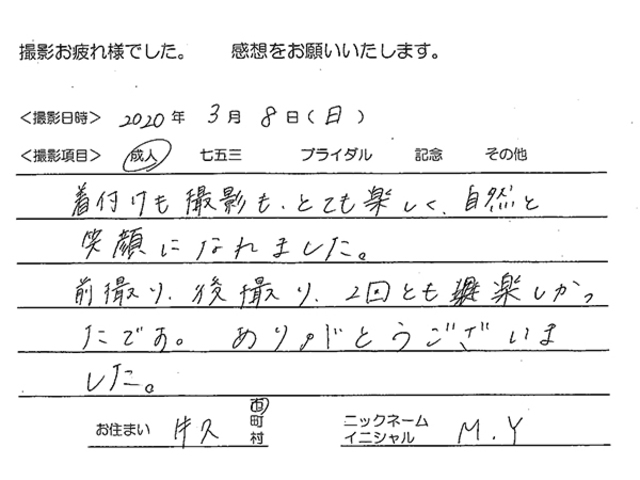 撮影お疲れ様でした。 感想をお願いいたします。
＜撮影日時＞ 2020年 3月 8日(日)
＜撮影項目＞ 成人 七五三 ブライダル 記念 その他
着付けも撮影も、とても楽しく、自然と
笑顔になれました。
前撮り、後撮り、2回とも楽しかっ
たです。 ありがとうございま
した。
お住まい 牛久 市町村 ニックネーム イニシャル M.Y